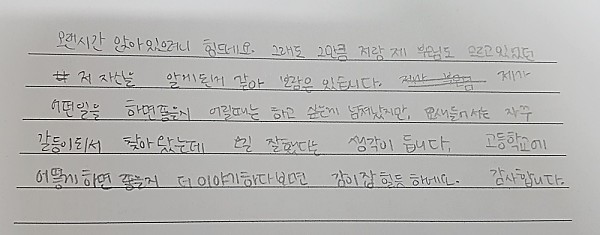 오랜시간 앉아있으려니 힘드네요. 그래도 그만큼 저랑 제 부모님도 모르고있었던
저 자신을 알게된거 같아 보람은 있습니다. 제가
어떤일을 하면좋을지 어릴때는 하고 싶은게 넘쳐났지만, 요새들어서는 자꾸
갈등이되서 찾아왔는데 잘했다는 생각이 듭니다. 고등학교에
어떻게하면 좋을지 더 이야기하다보면 감이잡힐듯 하네요. 감사합니다.